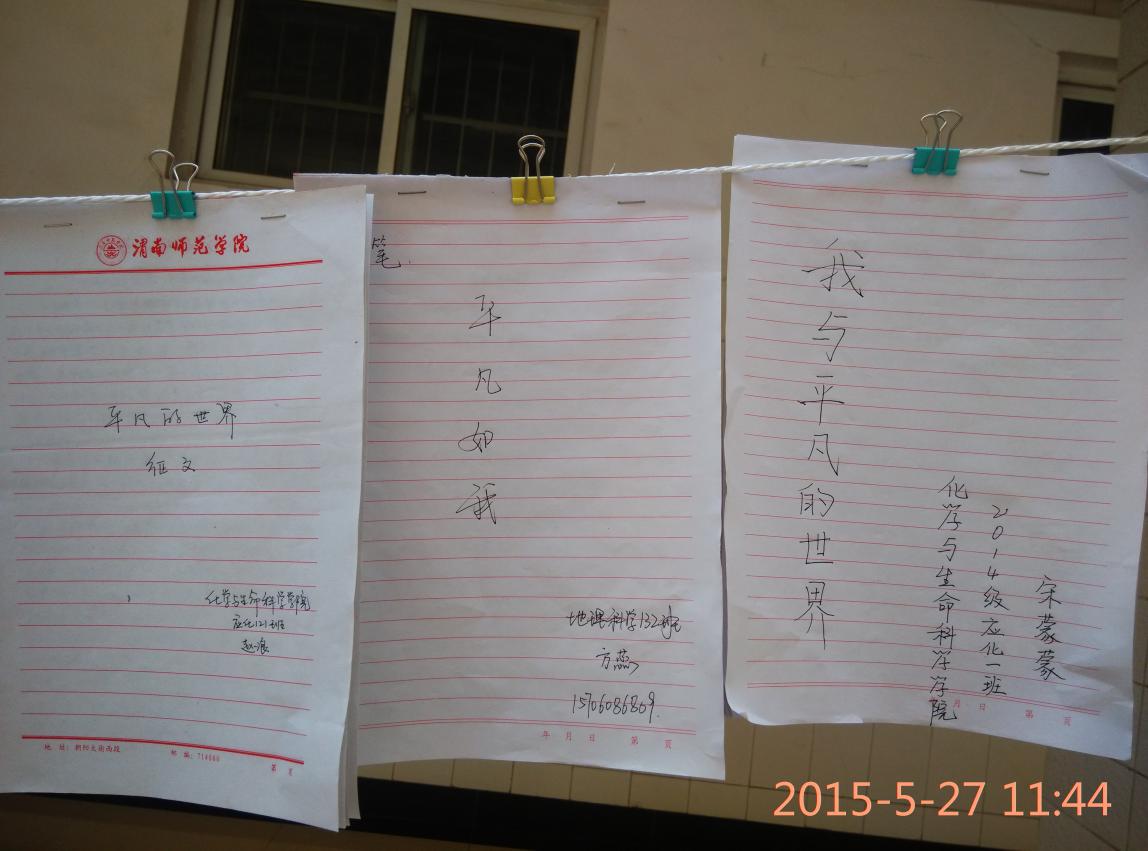 渭南师范学院
平凡的世界
征文
化学与生命科学学院
应化121班
赵浪
地 址：朝阳大街西段
邮 编：714000
第 页
笔.
平凡如我
地理科学132班
方蕊
15706086869.
年 月 日 第 页
我与平凡的世界
化学与生命科学学院
2014级应化一班
宋蒙蒙
月 日 第 页
2015-5-27 11:44